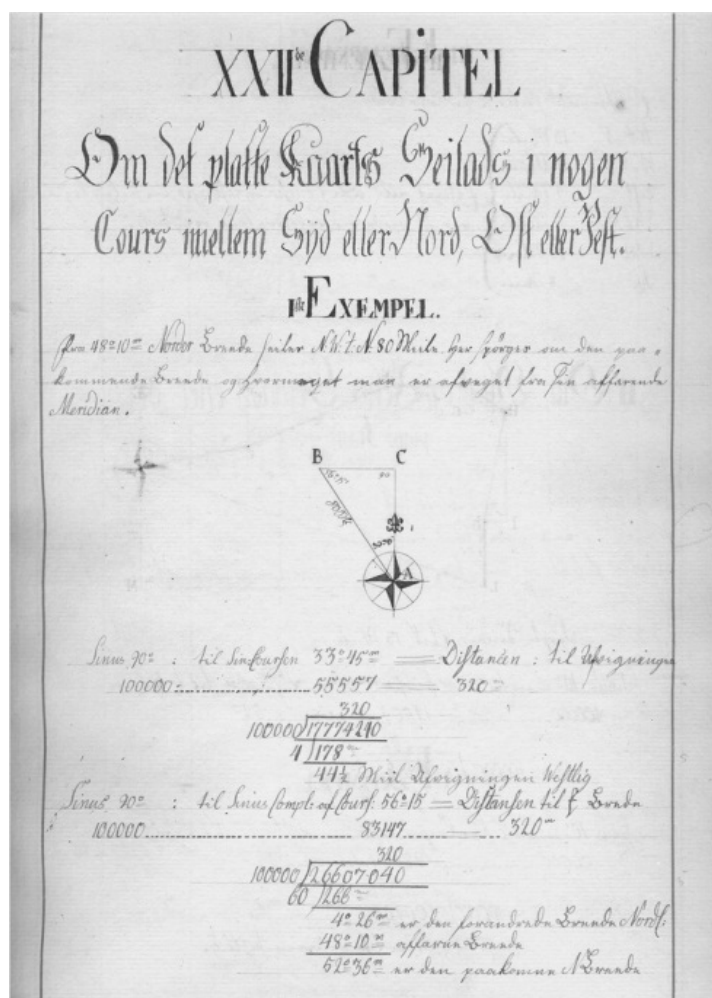 XXII de CAPITEL
Om det platte Kaarts Seilads i nogen
Cours imellem Syd eller Nord, Ost eller Vest.
1ste EXEMPEL.
Fra 48° 10 m Nordor Breede seiler N.W.t.N. 80 Miile her spörges om den paa-
kommende Breede og hvormeget man er afveget fra Sin affarende
Meridian.
B C
56° 15 90
A
Sinus 90° : til Sin: Coursen 33° 45 m Distancen : til Afvigningen
100000 55557 320 m
320
100000 17774240
4 178 m
44½ Miil Afvigningen Westlig
Sinus 90° : til Sinus Compl: af Cours: 56° 15 Distansen til Brede
100000 83147 320 m
320
100000 26607040
60 266 m
4° 26 m er den forandrede Breede Nordl:
48° 10 m affarne Breede
52° 36 m er den paakomne N Breede